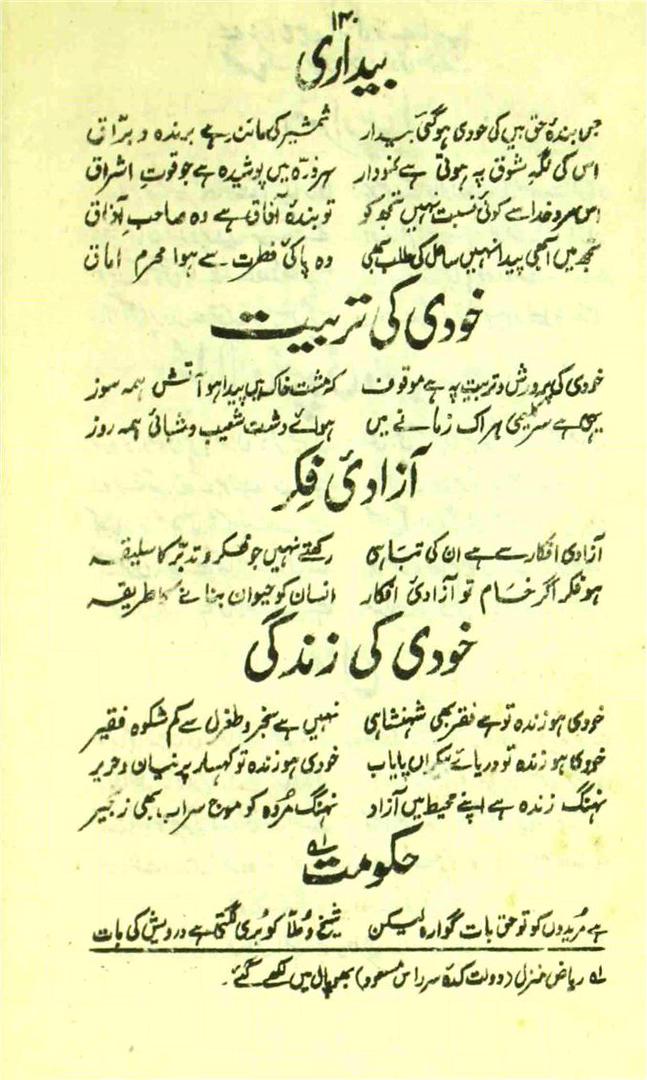 ۱۳۰
بیداری
جس بندۂ حق بیں کی خودی ہوگئی بیدار شمشیر کی مانند ہے برندہ و برّاق
اس کی نگہِ شوق پہ ہوتی ہے نمودار ہر ذرّہ میں پوشیدہ ہے جو قوتِ اشراق
اس مردِ خدا سے کوئی نسبت نہیں تجھ کو تو بندۂ آفاق ہے وہ صاحبِ آفاق
تجھ میں ابھی پیدا نہیں ساحل کی طلب بھی وہ پاکیٔ فطرت سے ہوا محرمِ اعماق
خودی کی تربیت
خودی کی پرورش و تربیت پہ ہے موقوف کہ مشتِ خاک میں پیدا ہو آتشِ ہمہ سوز
یہی ہے سرِّ کلیمی ہر اک زمانے میں ہوائے دشت شعیب و شبانیٔ ہمہ روز
آزادیٔ فکر
آزادیٔ افکار سے ہے ان کی تباہی رکھتے نہیں جو فکر و تدبّر کا سلیقہ
ہو فکر اگر خام تو آزادیٔ افکار انسان کو حیوان بنانے کا طریقہ
خودی کی زندگی
خودی ہو زندہ تو ہے فقر بھی شہنشاہی نہیں ہے سنجر و طغرل سے کم شکوہِ فقیر
خودی ہو زندہ تو دریائے بیکراں پایاب خودی ہو زندہ تو کہسار پرنیان و حریر
نہنگ زندہ ہے اپنے محیط میں آزاد نہنگِ مُردہ کو موجِ سراب بھی زنجیر
حکومت ؎۱
ہے مُریدوں کو تو حق بات گوارا لیکن شیخ و مُلّا کو بُری لگتی ہے درویش کی بات
؎۱ ریاض منزل (دولت کدۂ سر راس مسعود) بھوپال میں لکھے گئے۔